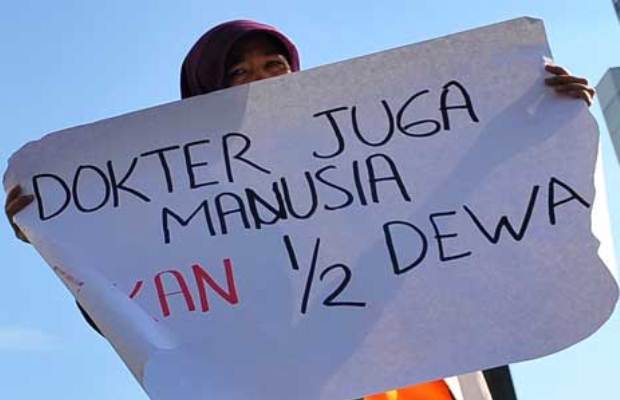 DOKTER JUGA
MANUSIA
KAN 1/2 DEWA